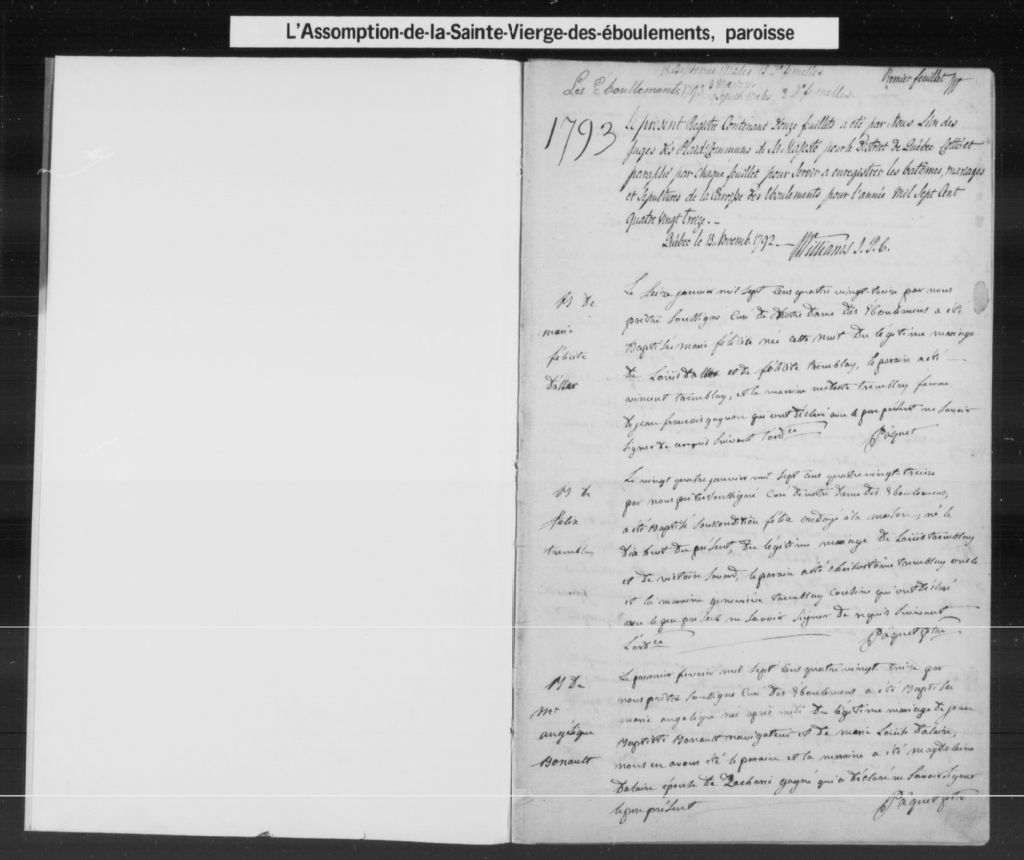 L'Assomption-de-la-Sainte-Vierge-des-éboulements, paroisse
Premier feuillet
Les Éboullements 1793
1793
le present Registre Contenant Douze fuillets a été par Nous L'un des
Juges des Plaids Communs de Sa Majesté pour le District de Québec Cotté et
paraphé par Chaque feuillet pour Servir a enregistrer les batêmes, mariages
et Sépultures de la Paroisse des Eboulements pour l'année Mil Sept Cent
quatre vingt treize. -
Québec le 13. Novemb. 1792. - Williams J. P. C.
B De
marie
félicité
Dallar
Le Seize janvier mil sept Cens quatre vingt-treize par nous
prêtre Soussigné Curé de Notre Dame des Eboulemens a été
Baptisée marie félicité née cette nuit Du légitime mariage
De Loüis et de félicité tremblay, le parain a été
vincent tremblay, et la maraine modeste tremblay femme
De jean francois gagnon qui ont déclaré avec le pere présent ne Savoir
Signer de requis Suivant l'ordce
Pâquet
B de
felix
tremblay
Le vingt quatre janvier mil sept Cens quatre vingt-treize
par nous prêtre Soussigné Curé De notre Dame des Eboulemens,
a été Baptisé Souscondition félix ondoyé à la maison; né le
Dix huit du présent, Du légitime mariage De Loüis tremblay
et de victoire Savard, le parain a été tremblay oncle
et la maraine geneviève tremblay Cousine qui ont déclaré
avec le pere présent ne Savoir Signer De requis Suivant
L'ordce
Pâquet ptre
B De
Me
angélique
Bonault
Le premier fevrier mil Sept Cens quatre vingt treize par
nous prêtre Soussigné Curé Des Eboulemens a été Baptisée
marie angelique né après midi Du légitime mariage de jean
Baptiste Bonault navigateur et de marie Loüise Dalaire;
nous en avons été le parain et la maraine a été magdeleine
Dalaire épouse De Zacharie gagné qui a Déclaré ne Savoir Signer
le pere présent
Pâquet ptre